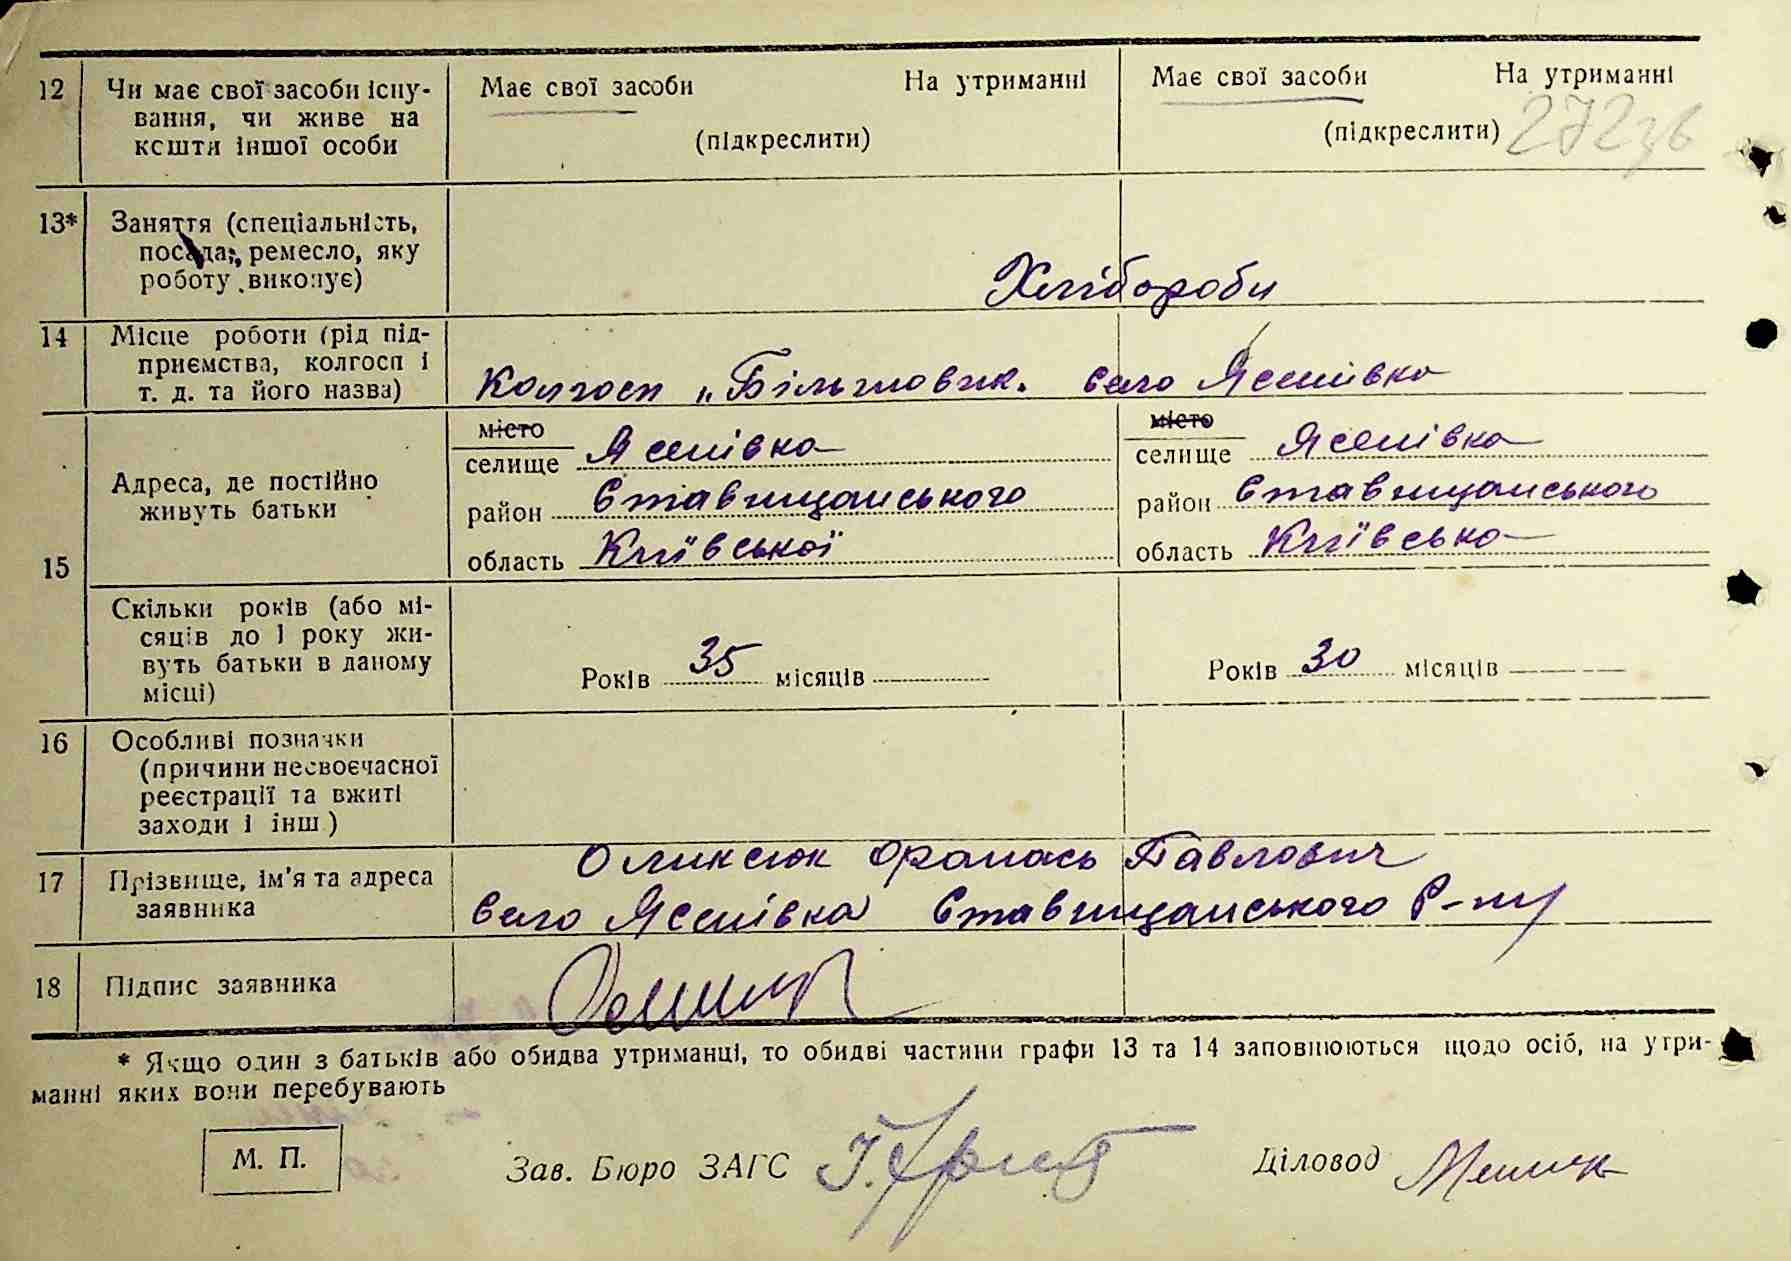 12 Чи має свої засоби існу- Має свої засоби На утриманні Має свої засоби На утриманні
вання, чи живе на (підкреслити) (підкреслити) 272зв
кошти іншої особи
13* Заняття (спеціальність,
посада, ремесло, яку
роботу виконує) Хлібороби
14 Місце роботи (рід під-
приємства, колгосп і Колгосп „Більшовик" село Ясенівка
т. д. та його назва)
15 Адреса, де постійно
живуть батьки
місто
селище Ясенівка
район Ставищанського
область Київської
місто
селище Ясенівка
район Ставищанського
область Київська
Скільки років (або мі-
сяців до 1 року жи-
вуть батьки в даному Років 35 місяців Років 30 місяців
місці)
16 Особливі позначки
(причини несвоєчасної
реєстрації та вжиті
заходи і інш.)
17 Прізвище, ім'я та адреса Олексюк Опанась Павлович
заявника село Ясенівка Ставищанського Р-ну
18 Підпис заявника
* Якщо один з батьків або обидва утриманці, то обидві частини графи 13 та 14 заповнюються щодо осіб, на утри-
манні яких вони перебувають
М. П. Зав. Бюро ЗАГС Діловод